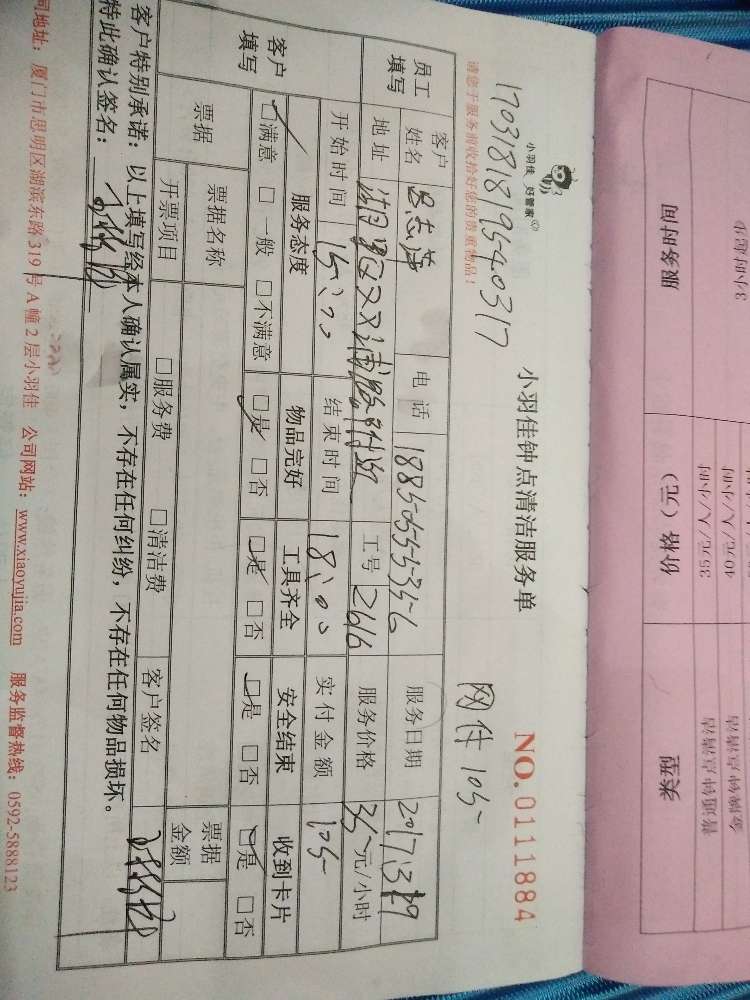 小羽佳 好管家
小羽佳钟点清洁服务单
NO.0111884
1703181819540317
网付 105-
请您于服务前收拾好您的贵重物品！
员工填写
客户姓名
电话 18850555356
服务日期
地址
工号 2616
服务价格 35 元/小时
开始时间 15:00
结束时间 18:00
实付金额 105-
客户填写
服务态度
物品完好
工具齐全
安全结束
收到卡片
□满意 □一般 □不满意
□是 □否
□是 □否
□是 □否
□是 □否
票据
票据名称
开票项目
□服务费 □清洁费
客户签名
票据金额
客户特别承诺：以上填写经本人确认属实，不存在任何纠纷，不存在任何物品损坏。
特此确认签名：
司地址：厦门市思明区湖滨东路319号A幢2层小羽佳 公司网站：www.xiaoyujia.com 服务监督热线：0592-5888123
类型
价格（元）
服务时间
普通钟点清洁
35元/人/小时
40元/人/小时
3小时起